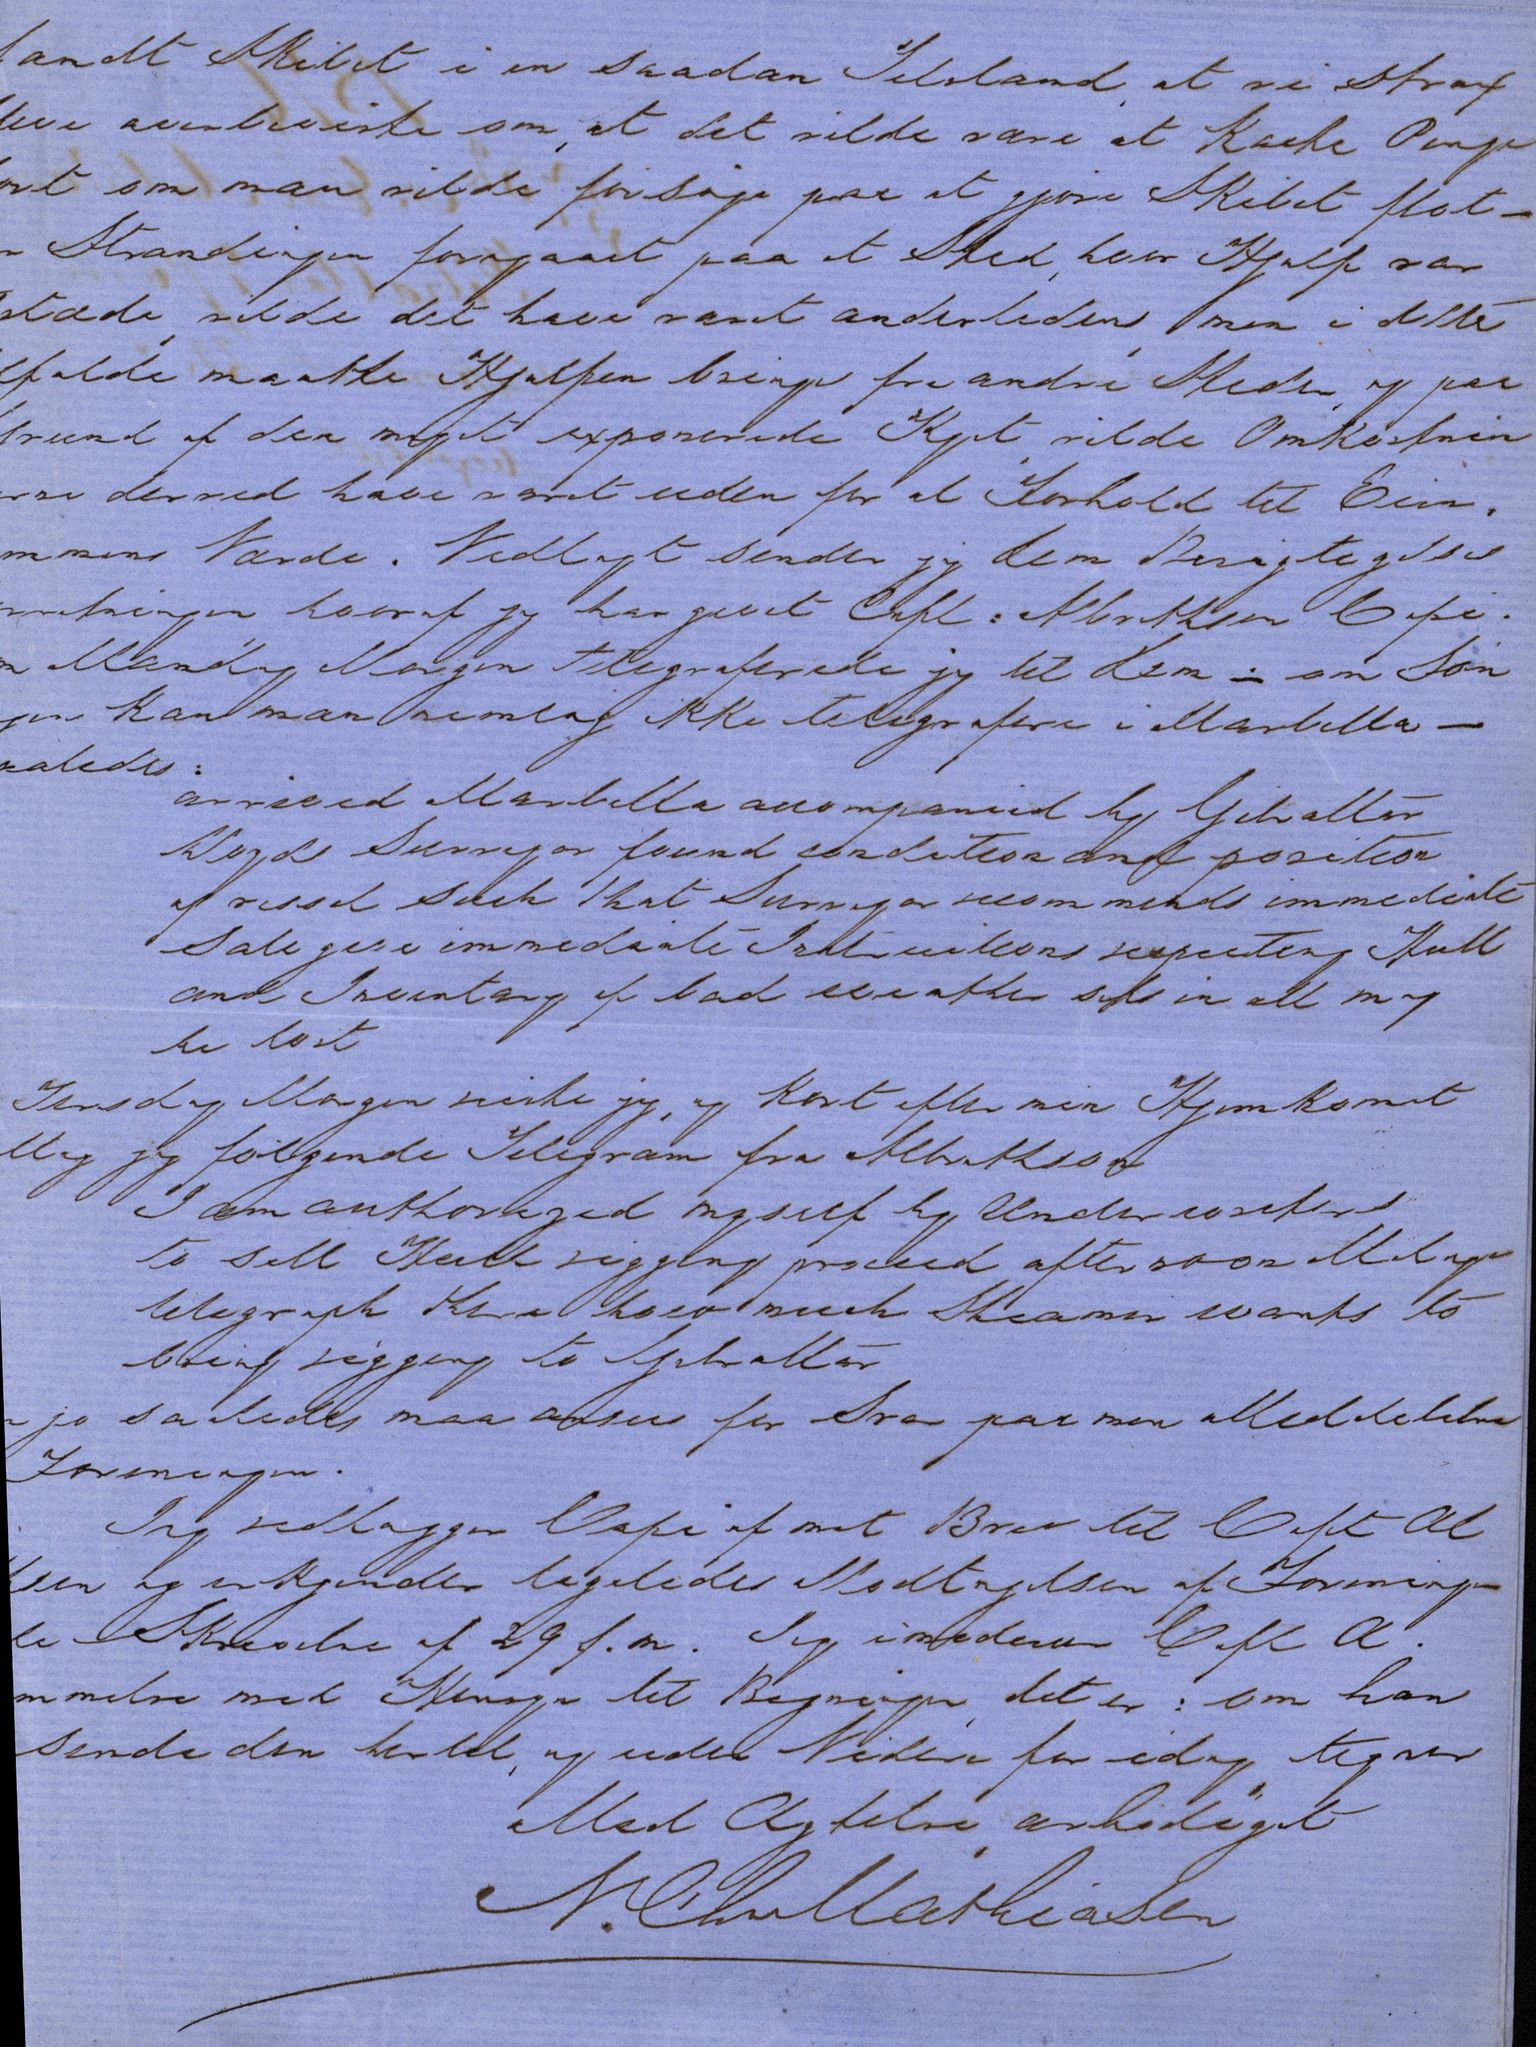 fandt Skibet i en saadan Tilstand, at vi strax
bleve overbeviste om, at det vilde være at kaste Penge
bort om man vilde forsøge paa at gjøre Skibet flot –
Strandingen foregaaet paa et Sted, hvor Hjælp var
tilstæde, vilde det have været anderledes, men i dette
Tilfælde maatte Hjælpen bringes fra andre Steder, og paa
Grund af den meget exponerede Kyst, vilde Omkostnin
gerne derved have været uden for al Forhold til Eien,
dommens Værdi. Vedlagt sender jeg Dem Besigtigelses
forretningen hvoraf jeg har givet Capt: Albrethsen Copi.
Mandag Morgen telegraferede jeg til Dem – om Søn
dagen kan man nemlig ikke telegrafere i Marbella –
saaledes:
arrived Marbella accompanied by Gibraltar
Lloyds Surveyor found condition and position
of vessel such that Surveyor recommends immediate
Sale give immediate Instructions respecting Hull
and Inventary if bad weather sets in all may
be lost
Tirsdag Morgen reiste jeg, og kort efter min Hjemkomst
modtog jeg følgende Telegram fra Albrethson
I am authorized myself by Underwriters
to sell Hull rigging proceed afternoon Malaga
telegraph there how much Steamer wants to
bring rigging to Gibraltar
jo saaledes maa ansees for Svar paa min Meddelelse
Foreningen.
Jeg vedlægger Copi af mit Brev til Capt Al
brethsen og erkjender ligeledes Modtagelsen af Forenings
Skrivelse af 29 f. m. Jeg imødeseer Capt A.
med Hensyn til Bjergningen, det er: om han
sende den hertil, og uden Videre for idag tegner
Med Agtelse, ærbødigst
N. Chr Mathiasen